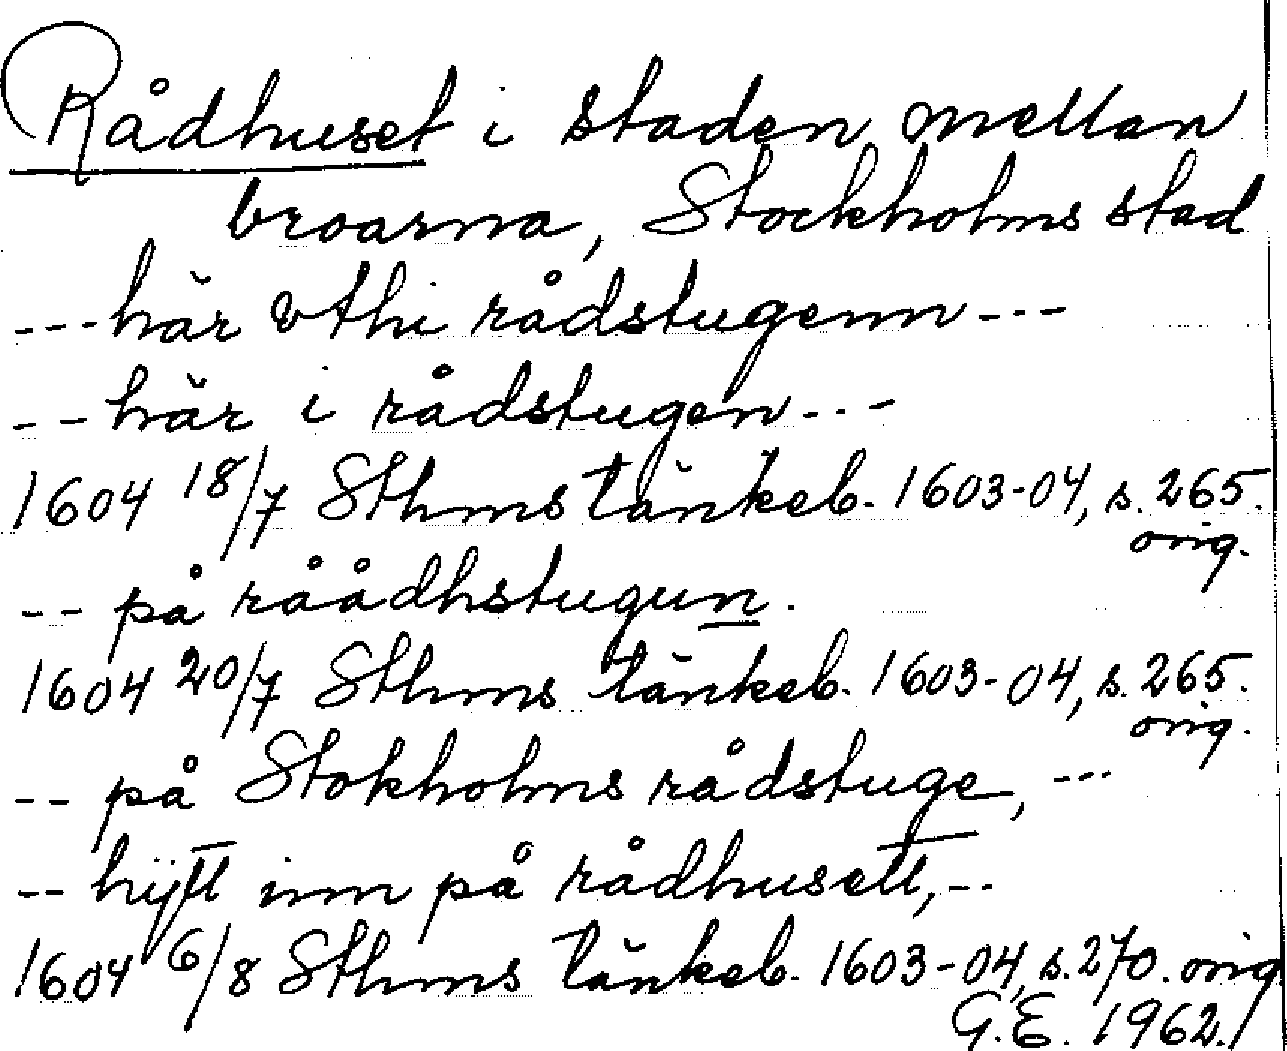 Rådhuset i staden mellan
broarna, Stockholms stad
--- här vthi rådstugenn ---
-- här i rådstugen ---
1604 18/7 Sthms tänkeb. 1603-04, s. 265.
orig.
-- på råådhstugun.
1604 20/7 Sthms tänkeb. 1603-04, s. 265.
orig.
-- på Stokholms rådstuge, ---
-- hijtt inn på rådhusett, --
1604 6/8 Sthms tänkeb. 1603-04, s. 270. orig
G.E. 1962./